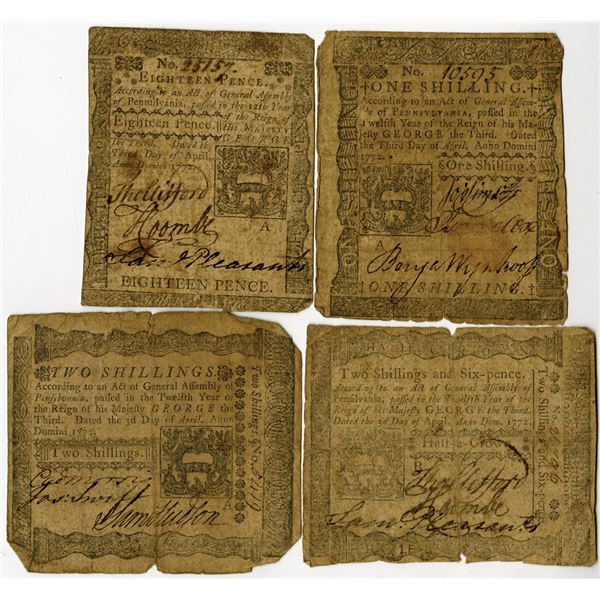 No. 25157.
EIGHTEEN PENCE.
According to an Act of General Assembly
of Pennsylvania, passed in the 12th Year
of the Reign of
Eighteen Pence.
His MAJESTY
GEORGE
the Third. Dated the
Third Day of April,
Anno Domini 1772.
Tho Clifford
A
Sam Pleasants
EIGHTEEN PENCE.
No. 10595
ONE SHILLING.
According to an Act of General Assem-
of PENNSYLVANIA, passed in the
Twelfth Year of the Reign of his Ma-
jesty GEORGE the Third. Dated
the Third Day of April, Anno Domini
1772.
One Shilling.
A
Benja Wynkoop
ONE SHILLING.
TWO SHILLINGS.
According to an Act of General Assembly of
Pensylvania, passed in the Twelfth Year of
the Reign of his Majesty GEORGE the
Third. Dated the 3d Day of April, Anno
Domini
Two Shillings.
Jos: Swift
A
Two Shillings
Two Shillings and Six-pence.
According to an Act of General Assembly of
Pensilvania, passed in the Twelfth Year of the
Reign of his Majesty GEORGE the Third.
Dated the 3d Day of April, Anno Dom. 1772.
Half-a-Crown
Tho Clifford
Sam Pleasants
Two Shillings and Six-pence